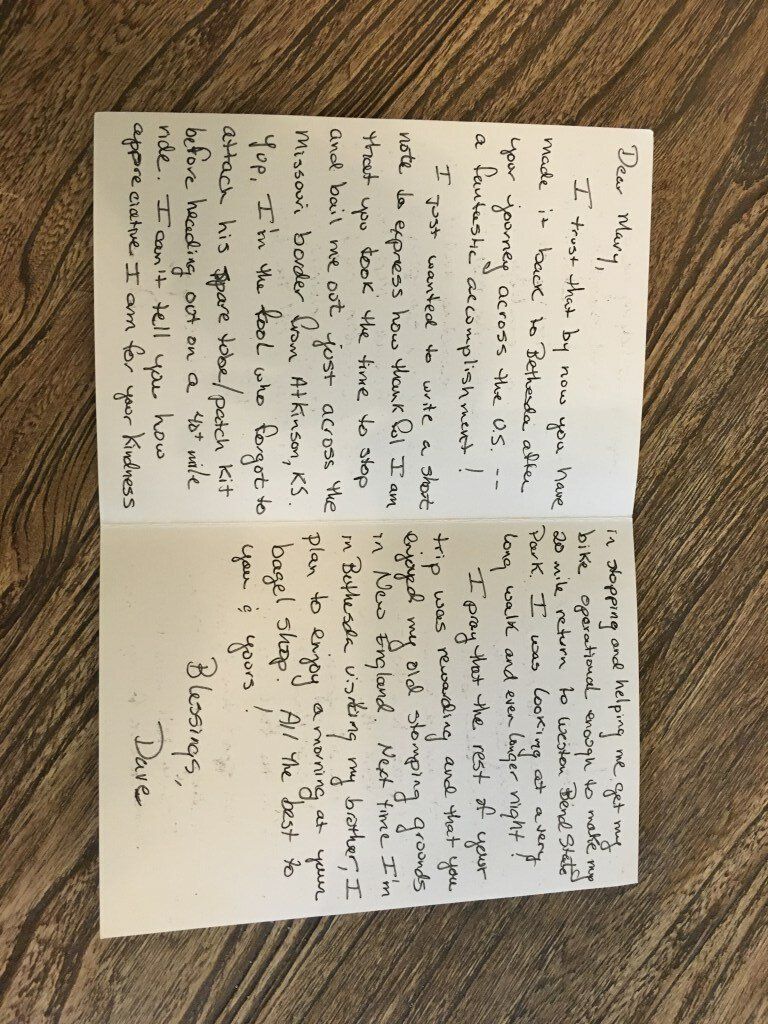 Dear Mary,
I trust that by now you have
made it back to Bethesda after
your journey across the US. --
a fantastic accomplishment!
I just wanted to write a short
note to express how thankful I am
that you took the time to stop
and bail me out just across the
Missouri border from Atkinson, KS.
Yup, I'm the fool who forgot to
attach his spare tube/patch kit
before heading out on a 40+ mile
ride. I can't tell you how
appreciative I am for your kindness
in stopping and helping me get my
bike operational enough to make my
20 mile return to Weston Bend State
Park. I was looking at a very
long walk and even longer night!
I pray that the rest of your
trip was rewarding and that you
enjoyed my old stomping grounds
in New England. Next time I'm
in Bethesda visiting my brother, I
plan to enjoy a morning at your
bagel shop. All the best to
you & yours!
Blessings,
Dave